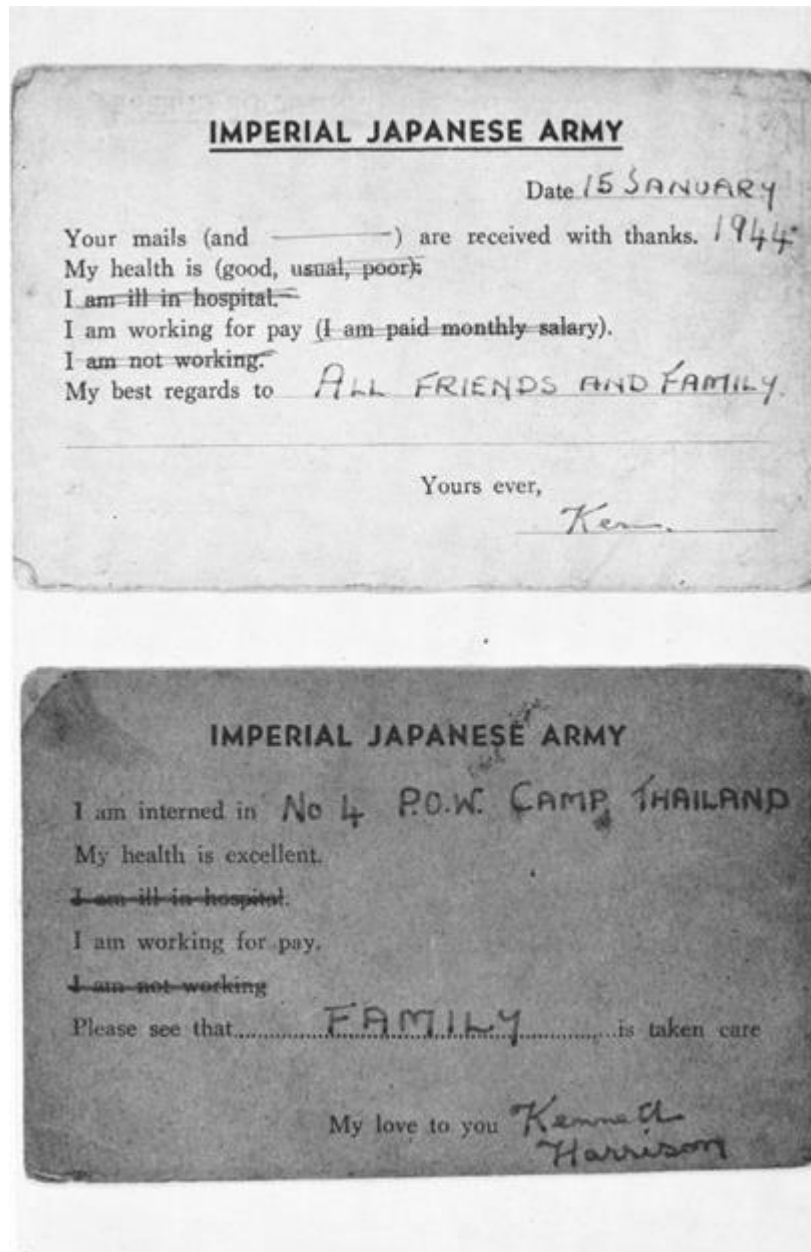 IMPERIAL JAPANESE ARMY
Date 15 JANUARY
Your mails (and ) are received with thanks. 1944
My health is (good, usual, poor).
I am ill in hospital.
I am working for pay (I am paid monthly salary).
I am not working.
My best regards to ALL FRIENDS AND FAMILY.
Yours ever,
Ken.
IMPERIAL JAPANESE ARMY
I am interned in No 4 P.O.W. CAMP, THAILAND
My health is excellent.
I am ill in hospital.
I am working for pay.
I am not working
Please see that FAMILY is taken care
My love to you Kenneth
Harrison